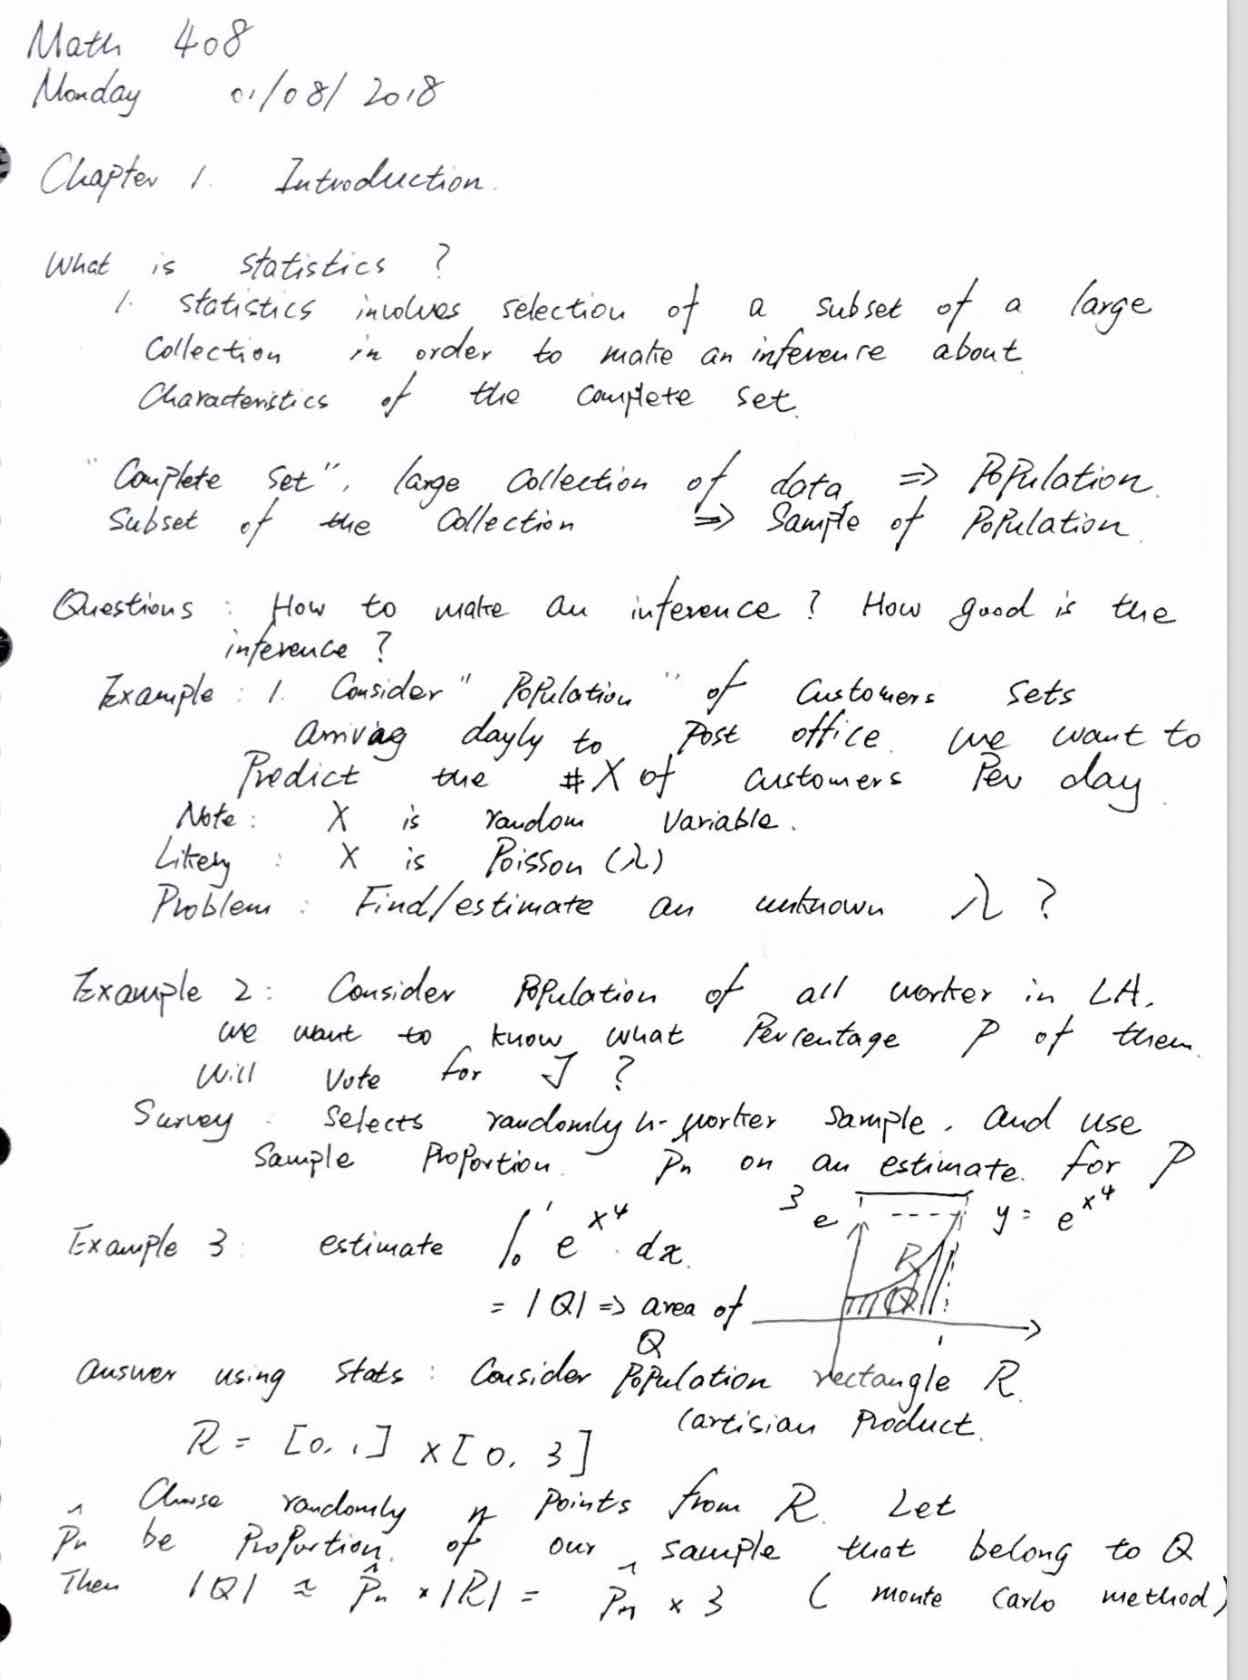 Math 408
Monday 01/08/2018
Chapter 1. Introduction.
What is statistics ?
1. statistics involves selection of a subset of a large
Collection in order to make an inference about
Characteristics of the complete set.
"Complete Set", large Collection of data, ⇒ Population.
Subset of the Collection ⇒ Sample of Population.
Questions : How to make an inference ? How good is the
inference ?
Example : 1. Consider "Population" of Customers sets
arriving dayly to Post office. we want to
Predict the # X of customers Per day.
Note : X is random Variable.
Likely : X is Poisson (λ)
Problem : Find/estimate an unknown λ ?
Example 2 : Consider Population of all worker in LA.
we want to know what Percentage P of them
will Vote for J ?
Survey : Selects randomly n-worker sample. and use
Sample Proportion. Pn on an estimate. for P
3
e y = e^x⁴
Example 3 : estimate ∫₀¹ e^x⁴ · dx.
R
= |Q| ⇒ area of Q
Q
1
answer using stats : Consider Population rectangle R.
Cartisian Product.
R = [0, 1] × [0, 3]
Chuse randomly n points from R. Let
P̂n be Proportion. of our sample that belong to Q
Then |Q| ≈ P̂n × |R| = P̂n × 3 ( monte Carlo method)